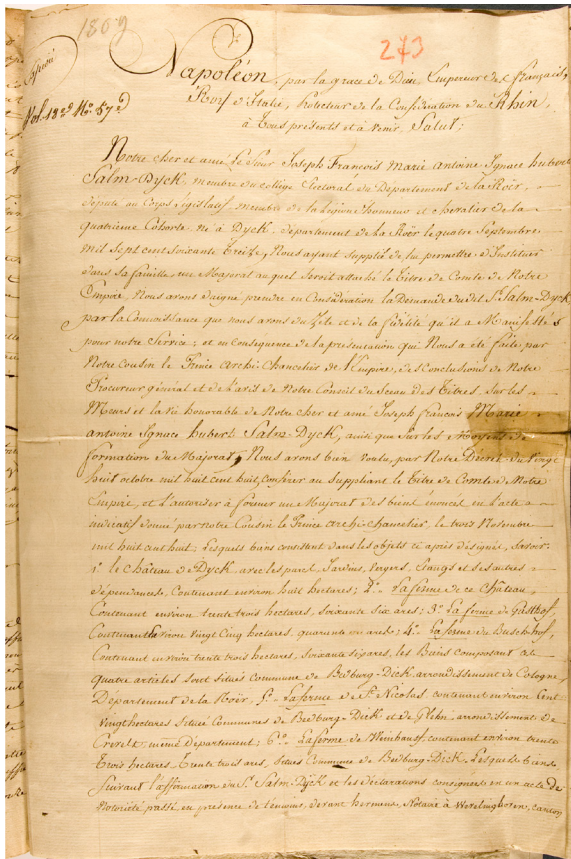 1809
243
Copié
Vol. 13e No. 57e
Napoléon, par la grace de Dieu Empereur des français,
Roi d'Italie, Protecteur de la Confédération du Rhin,
à Tous présents et à venir Salut;
Notre cher et amé Le Sieur Joseph François Marie Antoine Ignace hubert
Salm-Dyck, membre du collège Electoral du Département de la Röer,
député au Corps législatif membre de la Légion d'honneur et chevalier de la
quatrième Cohorte né à Dyck, département de la Röer le quatre Septembre
mil Sept cent soixante Treize, Nous ayant Supplié de lui permettre d'Instituer
dans Sa famille, un Majorat auquel seroit attaché le Titre de Comte de Notre
Empire, Nous avons daigné prendre en Considération la Demande du dit Sr. Salm-Dyck
par la Connoissance que nous avons du Zèle et de la fidélité qu'il a Manifestés
pour notre Service; et en conséquence de la présentation qui Nous a été faite par
Notre Cousin le Prince Archi-Chancelier de l'Empire, des Conclusions de Notre
Procureur général et de l'avis de Notre Conseil du Sceau des Titres, sur les
Mœurs et la Vie honorable de Notre cher et amé Joseph françois Marie
antoine Ignace hubert Salm-Dyck, ainsi que sur les Moyens de
formation du Majorat, Nous avons bien voulu, par Notre Décret du Vingt
huit octobre mil huit cent huit, conférer au Suppliant le Titre de Comte de Notre
Empire, et l'autoriser à former un Majorat des biens énoncés en l'acte
indicatif donné par notre Cousin le Prince archi-chancelier, le trois Novembre
mil huit cent huit; Lesquels biens consistent dans les objets ci après désignés, Savoir:
1o. le château de Dyck, avec les parcs, Jardins, vergers, Etangs et ses autres
dépendances, Contenant environ huit hectares; 2o. La ferme de ce Château,
Contenant environ trente trois hectares, soixante six ares; 3o. La ferme de Gasthof,
Contenant environ Vingt Cinq hectares, quarante un ares; 4o. La ferme de Buschhof,
Contenant environ trente trois hectares, soixante six ares, les Biens composant ces
quatre articles sont situés Commune de Bedburg-Dick, arrondissement de Cologne,
Département de la Roër, 5o. La ferme de St. Nicolas contenant environ Cent
vingt hectares situés Communes de Bedburg-Dick et de Glehn, arrondissements de
Crevelt, même Département; 6o. La ferme de Neuhauss contenant environ trente
Trois hectares, trente trois ares, situés Commune de Bedburg-Dick. Lesquels biens
suivant l'affirmation du Sr. Salm-Dyck et les déclarations consignées en un acte de
Notoriété passé, en présence de témoins, devant hermans, Notaire à Wevelinghoven, canton